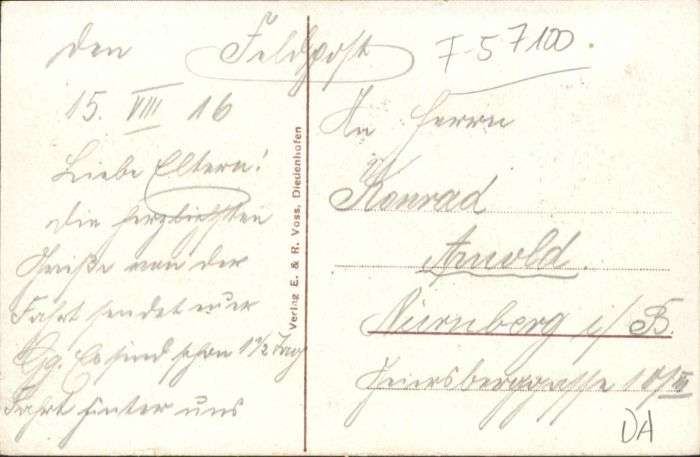 Feldpost
F-57100.
den
15. VIII 16
Liebe Eltern!
Die herzlichsten
Grüße von der
Fahrt sendet euer
Es sind schon 1 1/2 Tag
Fahrt hinter uns
Verlag E. & R. Voss, Diedenhofen
An Herrn
Konrad
Arnold.
Nürnberg i/B.
10/III
DA